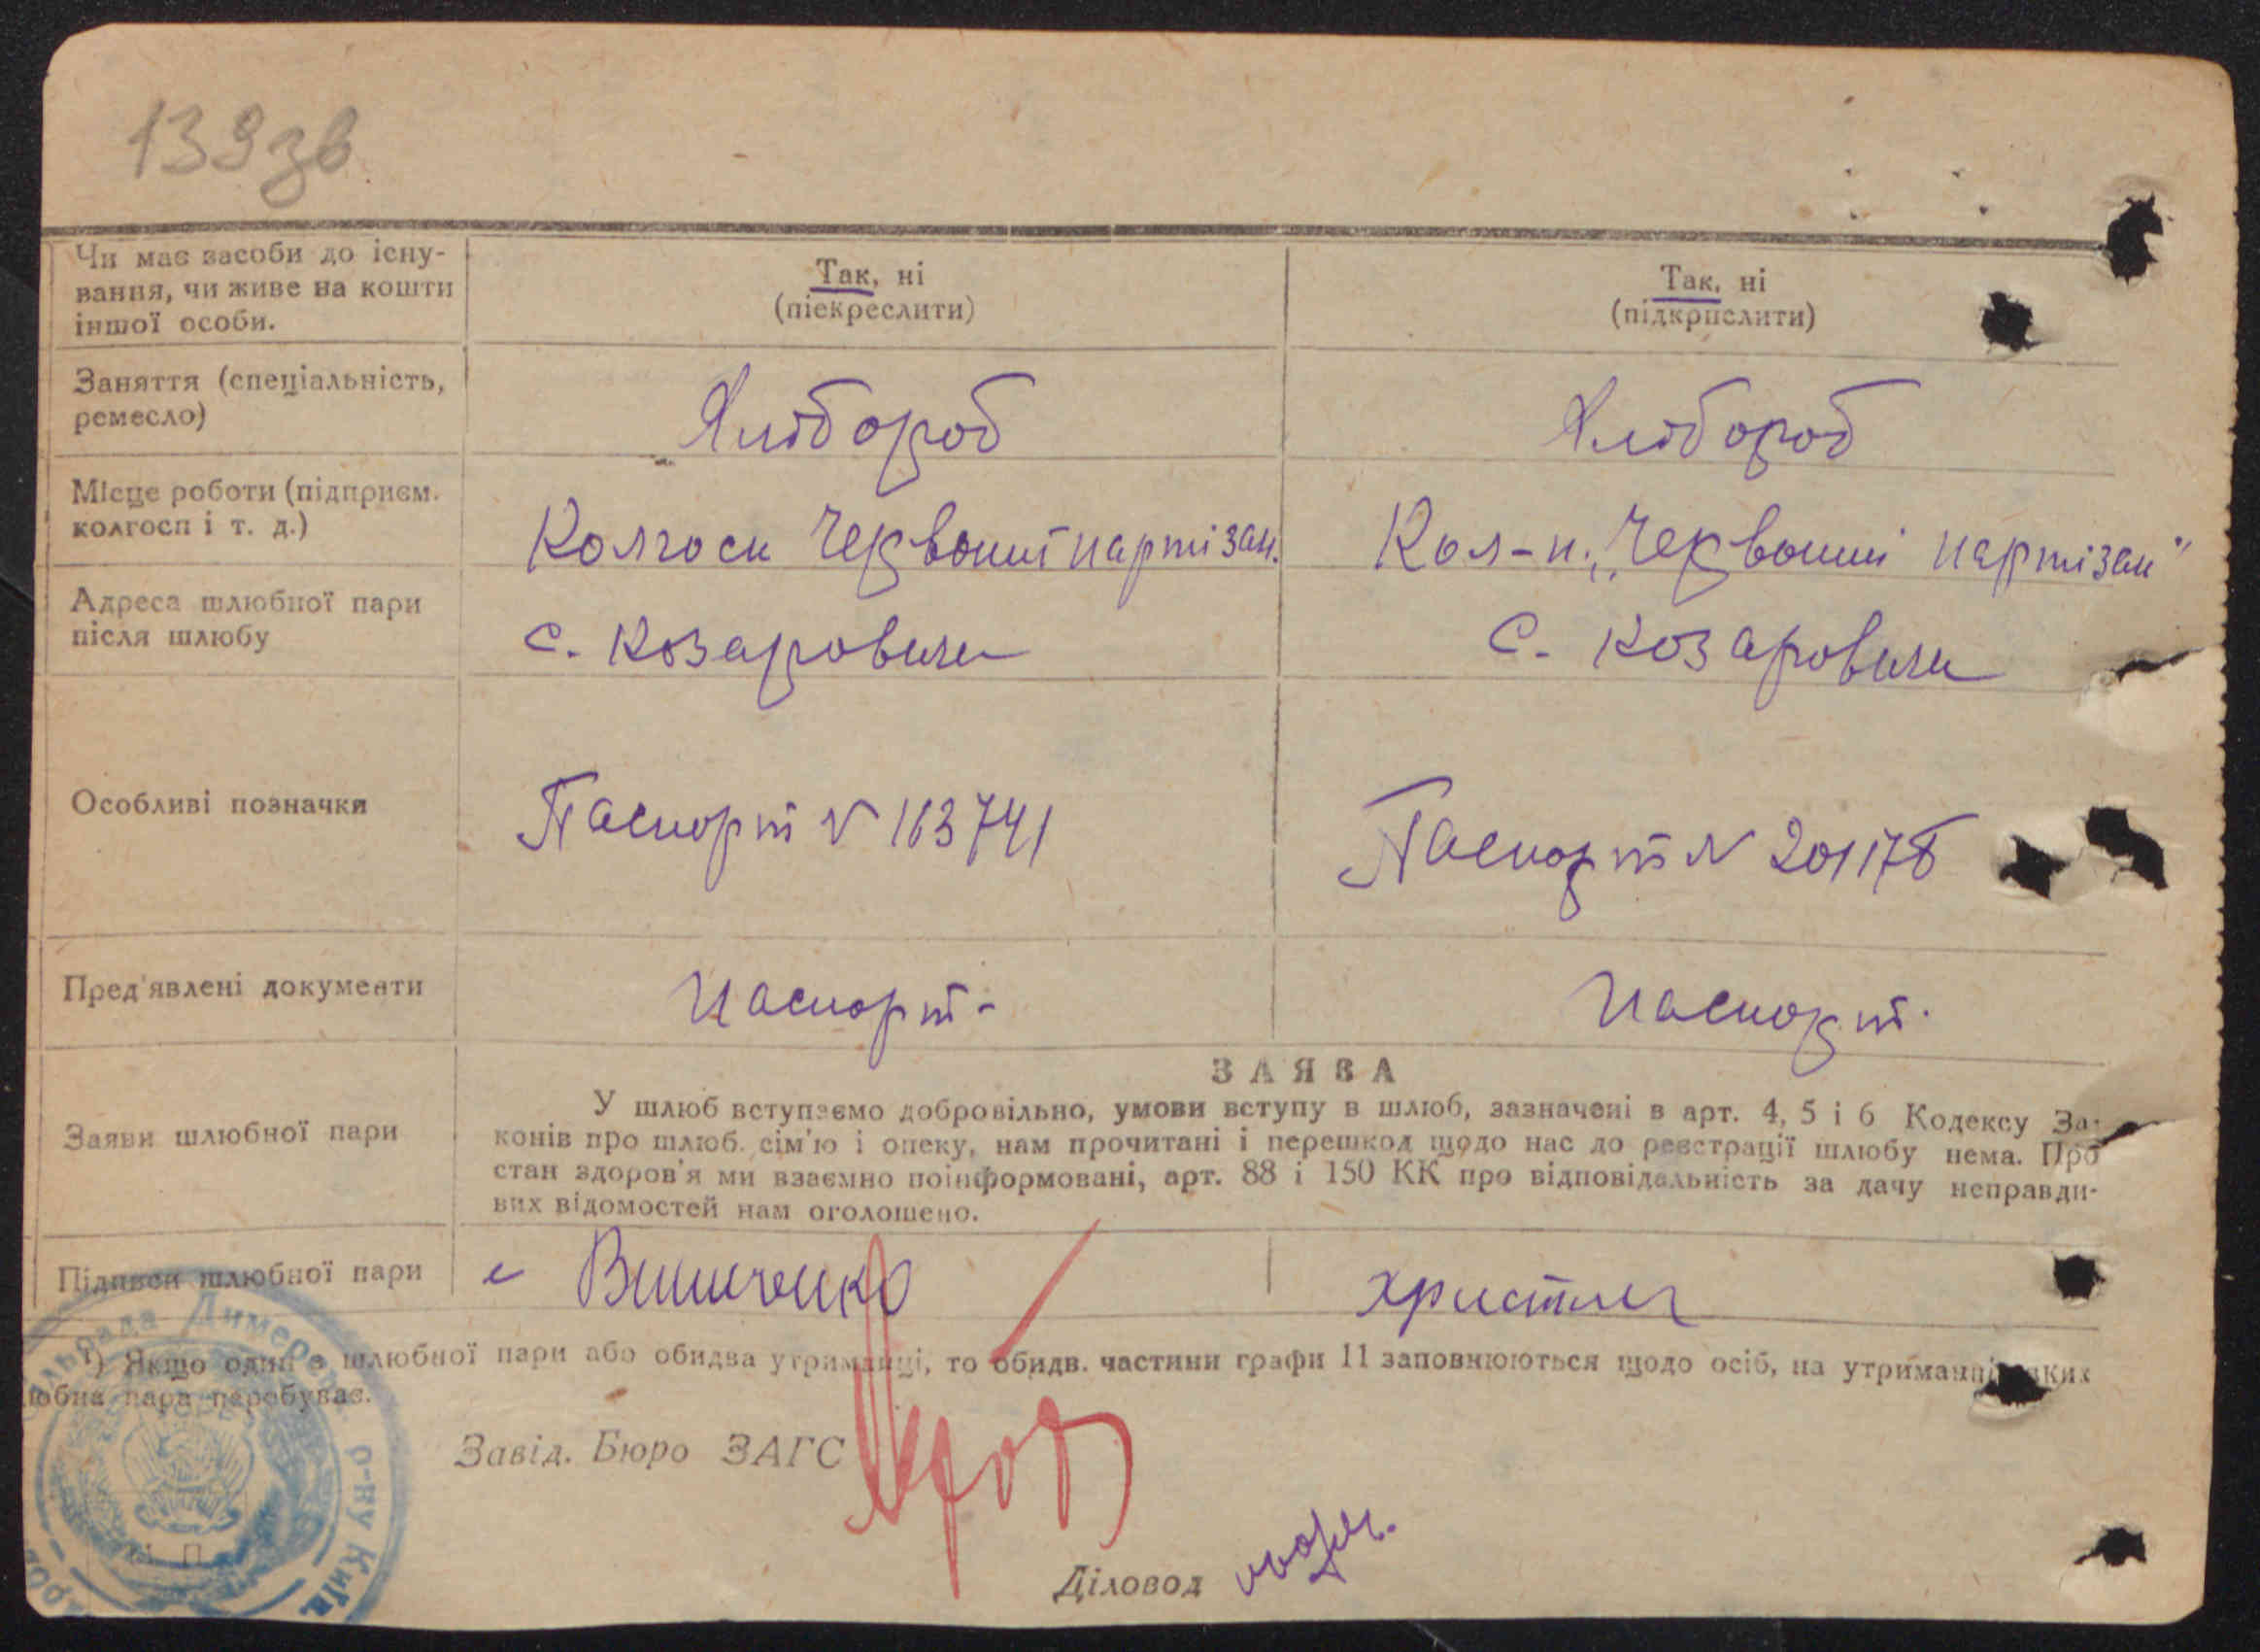 139 зв
Чи має засоби до існу-
вання, чи живе на кошти
іншої особи.
Так, ні
(піекреслити)
Так, ні
(підкрислити)
Заняття (спеціальність,
ремесло)
Хлібороб
Хлібороб
Місце роботи (підприєм.
колгосп і т. д.)
Колгосп Червоний партізан.
Кол-п. „Червоний партізан"
Адреса шлюбної пари
після шлюбу
с. Козаровичи
с. Козаровичи
Особливі позначки
Паспорт № 163741
Паспорт № 201178
Пред'явлені документи
Паспорт-
Паспорт.
Заяви шлюбної пари
ЗАЯВА
У шлюб вступаємо добровільно, умови вступу в шлюб, зазначені в арт. 4, 5 і 6 Кодексу За-
конів про шлюб. сім'ю і опеку, нам прочитані і перешкод щодо нас до реєстрації шлюбу нема. Про
стан здоров'я ми взаємно поінформовані, арт. 88 і 150 КК про відповідальність за дачу неправди-
вих відомостей нам оголошено.
Підписи шлюбної пари
¹) Якщо один з шлюбної пари або обидва утриманці, то обидв. частини графи 11 заповнюються щодо осіб, на утриманні яких
юбна пара перебуває.
Завід. Бюро ЗАГС
Діловод
Димерс
р-ну Київ
М П